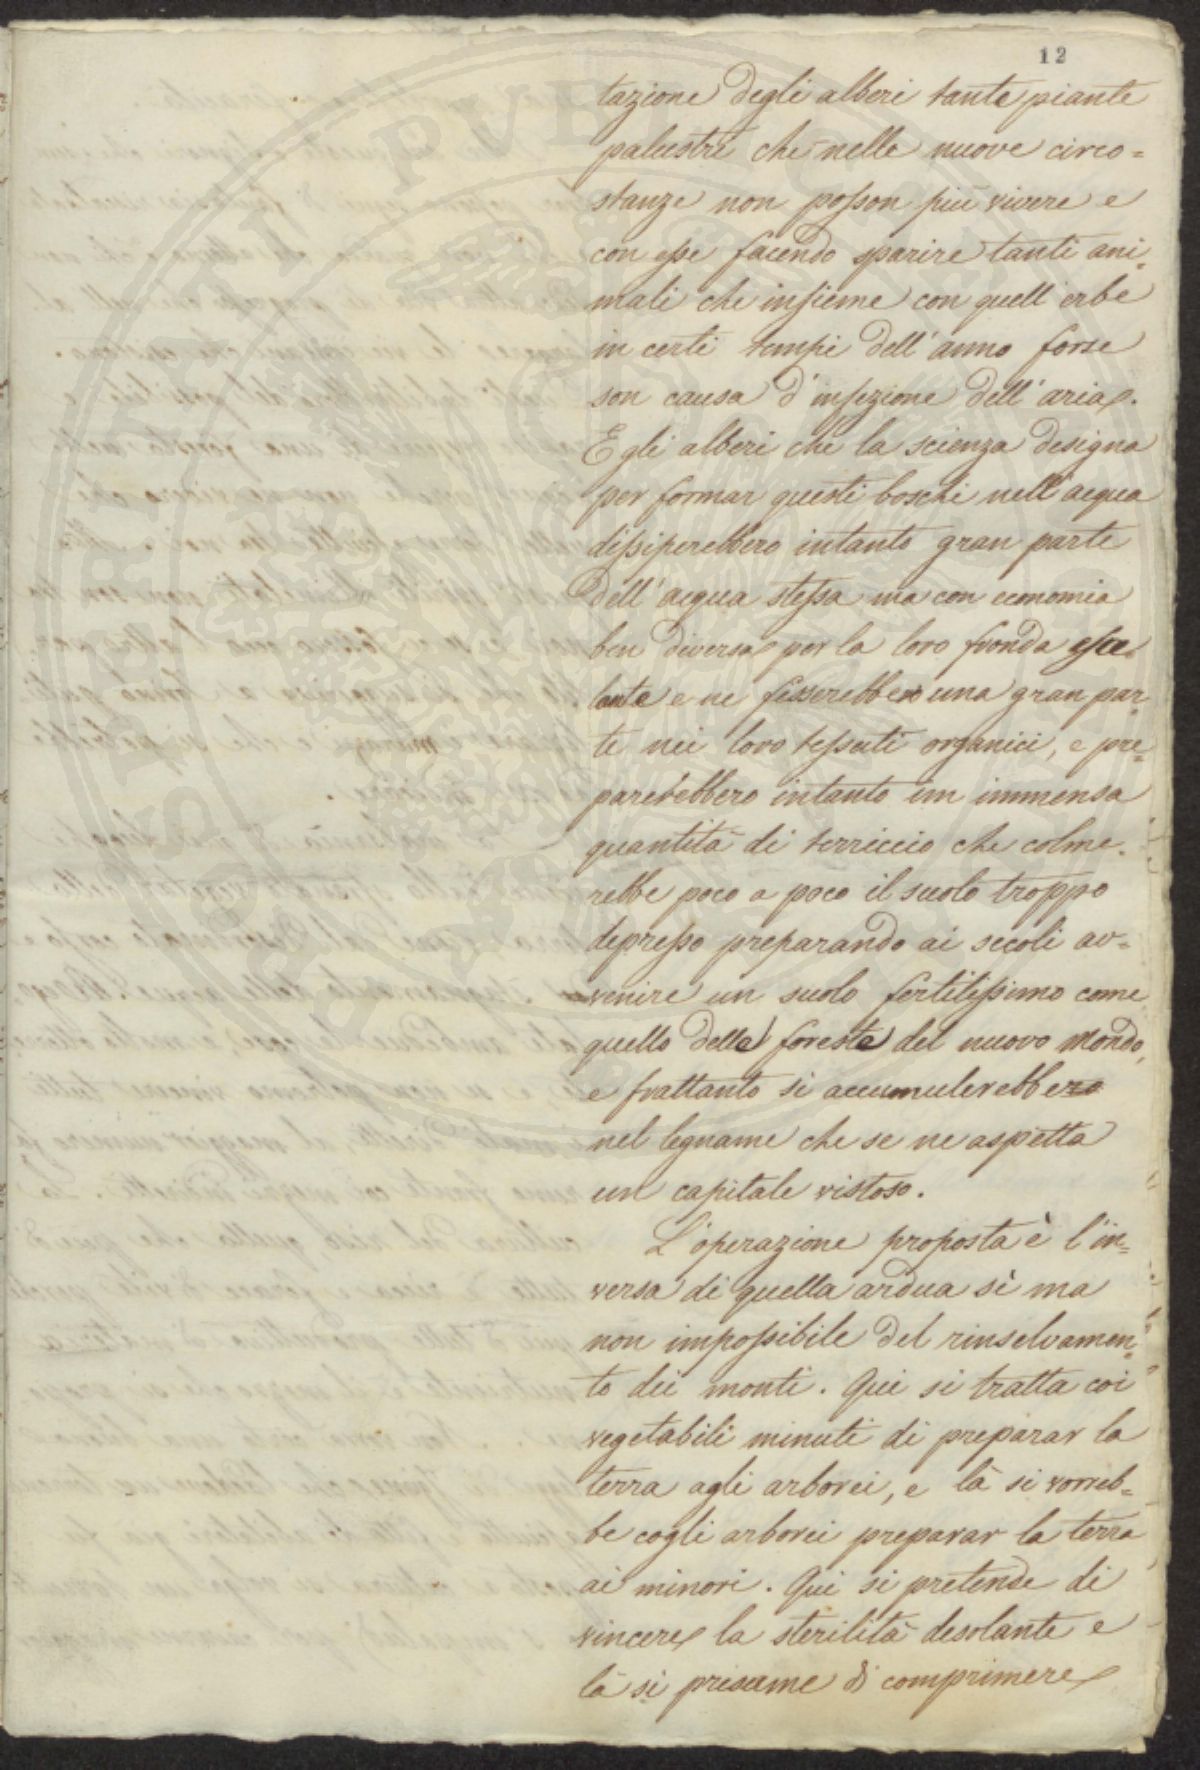 12
tazione degli alberi tante piante
palustri che nelle nuove circo=
stanze non posson più vivere e
con esse facendo sparire tanti ani=
mali che insieme con quell'erbe
in certi tempi dell'anno forse
son causa d'infezione dell'aria.
E gli alberi che la scienza designa
per formar questi boschi nell'acqua
dissiperebbero intanto gran parte
dell'acqua stessa ma con economia
ben diversa per la loro fronda
e ne fisserebbero una gran par=
te nei loro tessuti organici, e pre=
parerebbero intanto un immensa
quantità di terriccio che colme=
rebbe poco a poco il suolo troppo
depresso preparando ai secoli av=
venire un suolo fertilissimo come
quello delle foreste del nuovo Mondo,
e frattanto si accumulerebbero
nel legname che se ne aspetta
un capitale vistoso.
L'operazione proposta è l'in=
versa di quella ardua sì ma
non impossibile del rinselvamen=
to dei monti. Qui si tratta coi
vegetabili minuti di preparar la
terra agli arborei, e là si vorreb=
be cogli arborei preparar la terra
ai minori. Qui si pretende di
vincere la sterilità desolante e
là si presume di comprimere
PVBLICAE